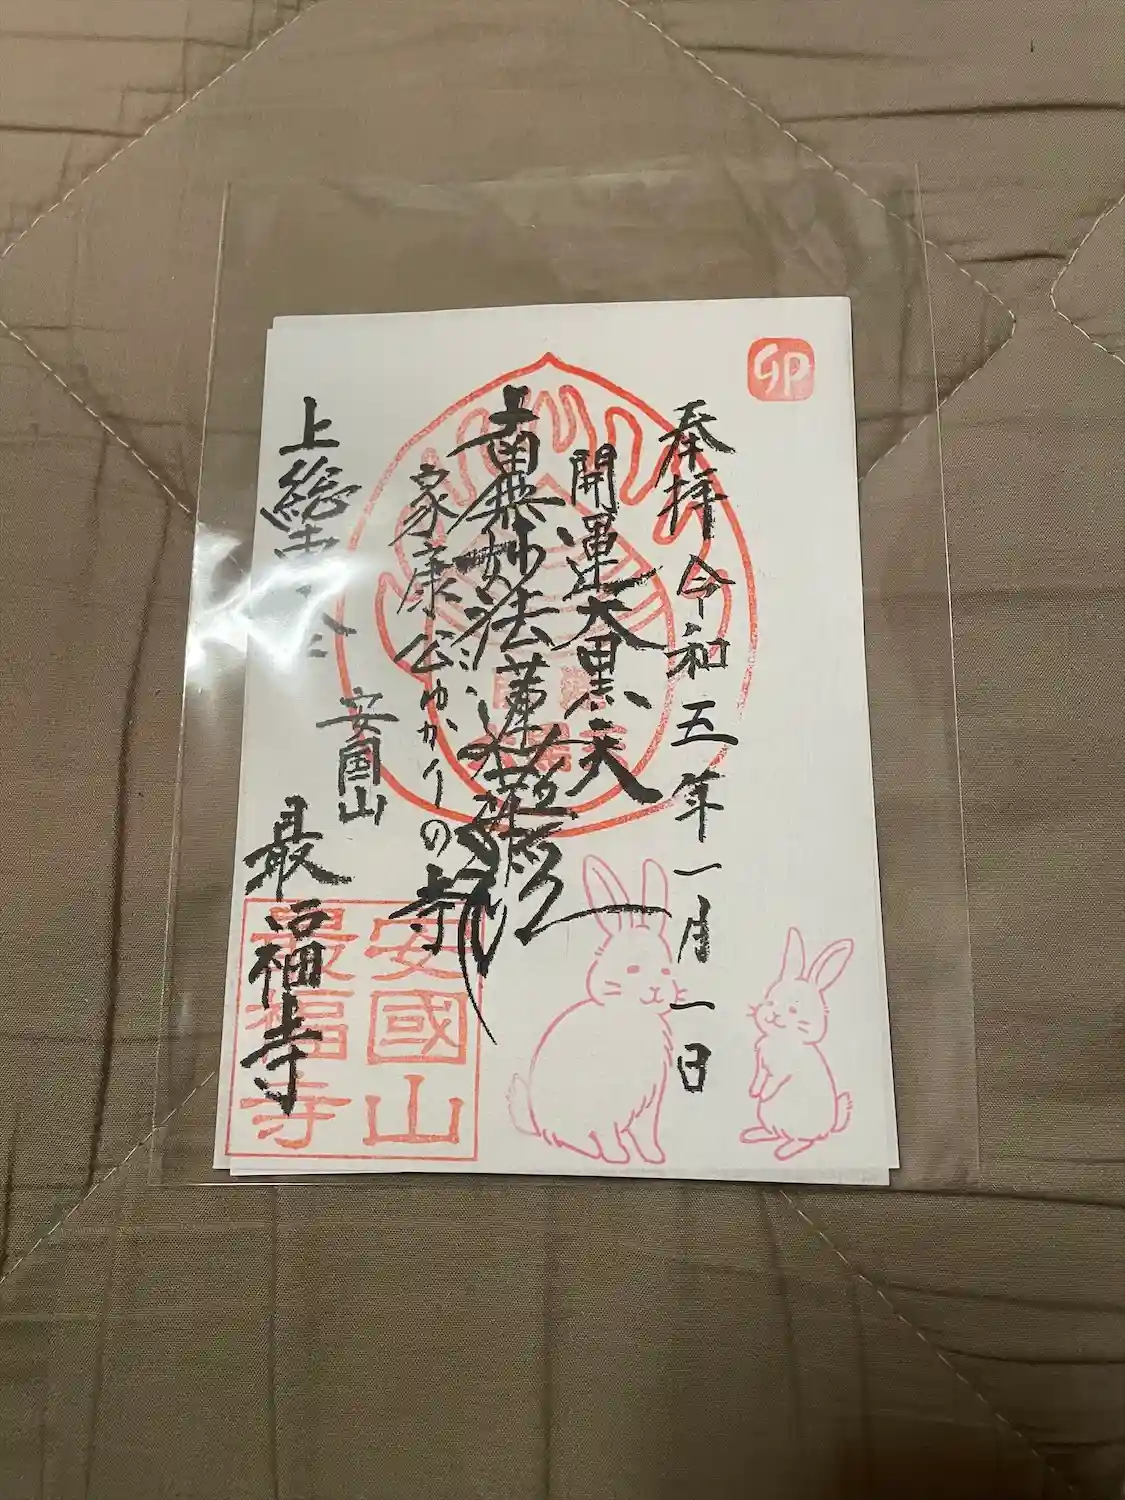 卯
奉拝 令和五年一月一日
開運大黒天
南無妙法蓮華経
家康公ゆかりの寺
上総
安国山
最福寺
安國山
最福寺